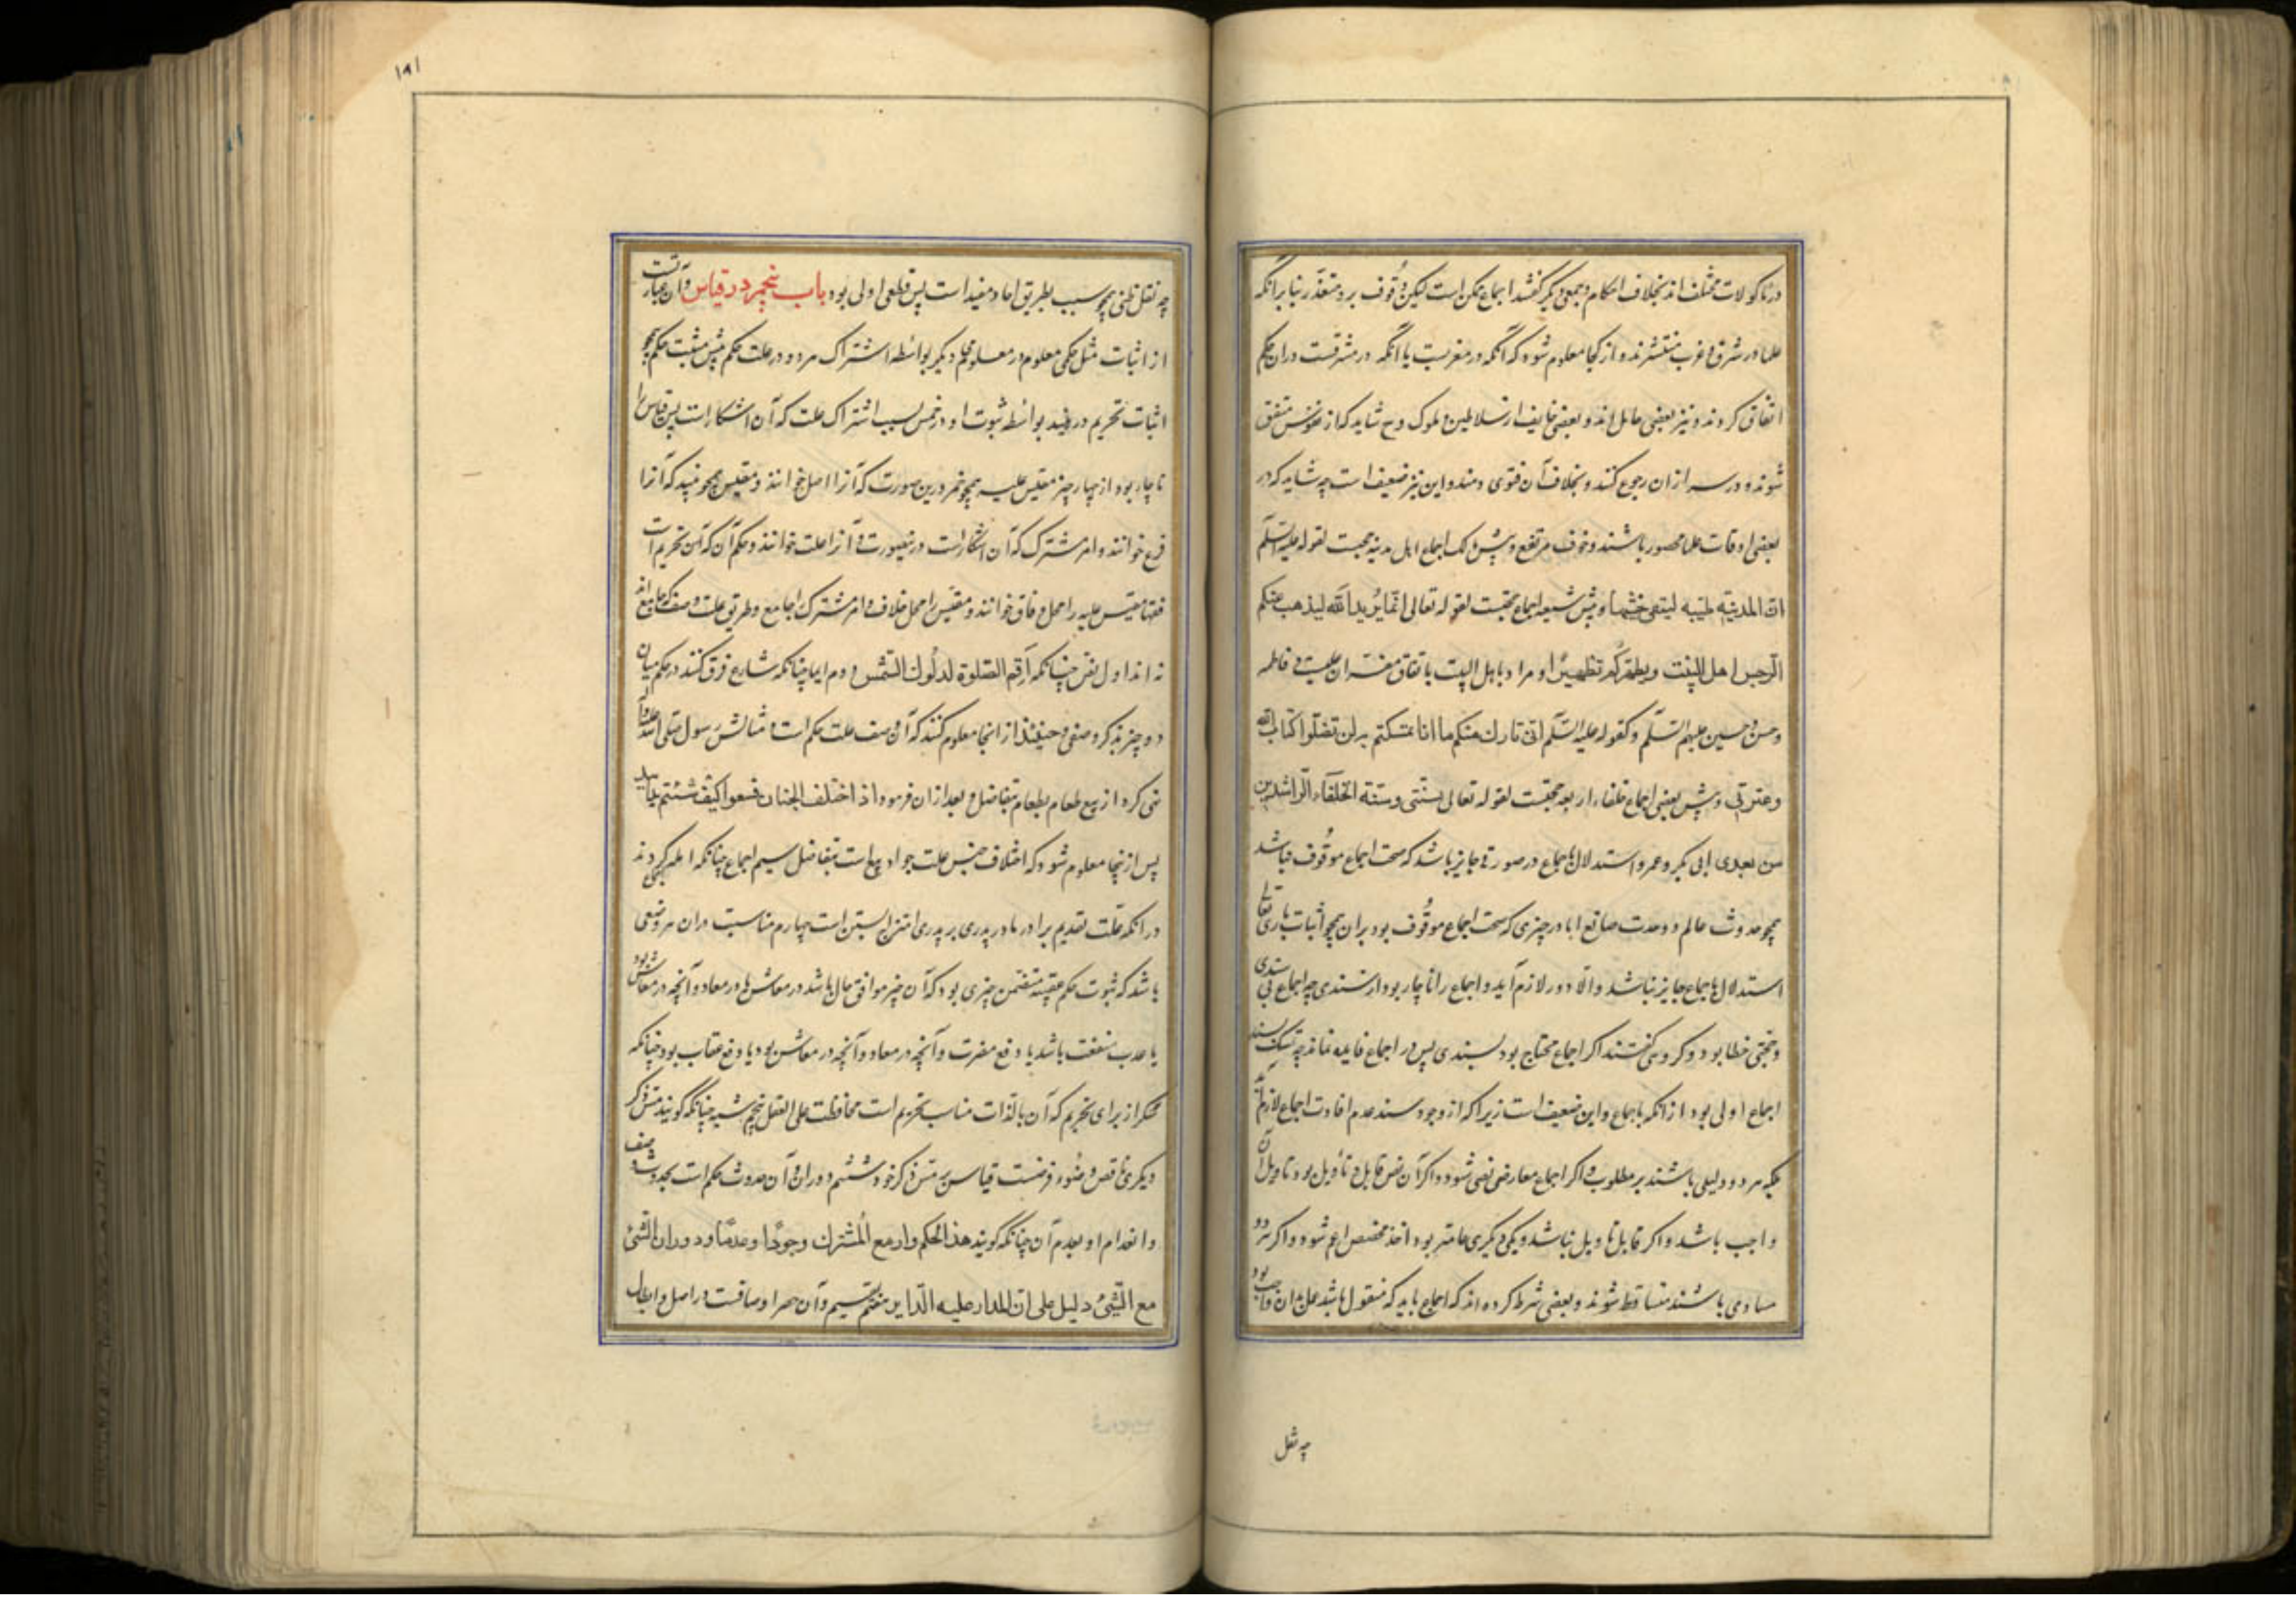 در ماکولات مختلف اند بخلاف احکام و جمعی دیکر کفتند اجماع ممکن است لیکن وُقوف برو متعذّر بنا برانکه
علما در شرق و غرب منتشرند و از کجا معلوم شود که آنکه در مغربست یا آنکه در مشرقست در ان حکم
اتفاق کردند و نیز بعضی حامل اند و بعضی خایف از سلاطین و ملوک وح شاید که از خوف متفق
شوند و در سر از ان رجوع کنند و بخلاف آن فتوی دهند و این نیز ضعیف است چه شاید که در
بعضی اوقات علما محصور باشند و خوف مرتفع و پیش مالک اجماع اهل مدینه حجت لقوله علیه السّلم
انّ المدینة طیّبه لینفی خبثها و پیش شیعه اجماع حجتست لقوله تعالی انّما یُرید الله لیذهب عنکم
الرّجس اهل البیت و یطهّرکُم تطهیرًا و مراد باهل البیت باتفاق مفسّران علیست و فاطمه
و حسن و حسین علیهم السّلم و کقوله علیه السّلم انّی تارك فیکم ما ان تمسّکتم به لن تضلّوا کتاب الله
و عترتی و پیش بعضی اجماع خلفاء اربعه حجتست لقوله تعالی بسنّتی و سنّة الخلفآء الرّاشدین
من بعدی ابی بکر و عمر و استدلال باجماع در صورتی جایز باشد که صحت اجماع موقُوف نباشد
همچو حدوث عالم و وحدت صانع اما در چیزی که صحت اجماع موقُوف بود بر ان همچو اثبات باری تعالی
استدلال باجماع جایز نباشد والّا دور لازم آید و اجماع را ناچار بود از سندی چه اجماع بی سندی
و حجتی خطا بود و کروهی کفتند اکر اجماع محتاج بود بسندی پس در اجماع فایده نماند چه تمسک بسند
اجماع اولی بود از آنکه باجماع و این ضعیف است زیرا که از وجود سند عدم افادت اجماع لازم نیاید
چه هر دو دلیلی باشند بر مطلوب و اکر اجماع معارض نص شود و اکر آن نص قابل تأویل بود تاویل آن
واجب باشد و اکر قابل تاویل نباشد و یکی از دیکری عامتر بود اخذ مخصص اعم شود و اکر هر دو
مساوی باشند متساقط شوند و بعضی شرط کرده اند که اجماع باید که منقول باشد عمل بدان واجب بود
چه نقل
۱۸۱
چه نقل ظنی همچو سبب بطریق احاد مفید است پس قطعی اولی بود باب پنجم در قیاس و آن عبارتست
از اثبات مثل حکمی معلوم در معلومی دیکر بواسطه اشتراک هر دو در علت حکم پیش مثبت حکم همچو
اثبات تحریم در نبیذ بواسطه ثبوت او در خمر بسبب اشتراک علت که آن اسکار است پس قیاس را
ناچار بود از چهار چیز مقیس علیه همچو خمر درین صورت که آنرا اصل خوانند و مقیس همچو نبیذ که آنرا
فرع خوانند و امر مشترک که آن اسکار است درینصورت و آنرا علت خوانند و حکم آن که آن تحریم است
فقها مقیس علیه را محل وفاق خوانند و مقیس را محل خلاف و امر مشترک را جامع و طریق علت وصف جامع اند
نه اند اول نص چنانکه آَقِم الصّلوة لدلُوك الشّمس دوم ایما چنانکه شارع فرق کنند در حکم میان
دو چیز بذکر وصفی و حینئذ از انجا معلوم کنند که آن وصف علت حکم است و مثالش رسول صلّی الله علیه و آله
نهی کرد از بیع طعام بطعام متفاضل و بعد از ان فرمود اذ اختلف الجنسان فبیعوا کیف شئتم
پس از ینجا معلوم شود که اختلاف جنس علت جواز بیع است بتفاضل سیم اجماع چنانکه اجماع کردند
در آنکه علت تقدیم برادر مادر پدری بر پدری امتزاج نسبتین است چهارم مناسبت و ان هر وصفی
باشد که ثبوت حکم عقیبش متضمن چیزی بود که آن چیز موافق حال باشد در معاش یا در معاد و آنچه در معاش بود
یا جذب منفعت باشد یا دفع مضرت و آنچه در معاد و آنچه در معاش بود یا دفع عقاب بود چنانکه
سُکر از برای تحریم که آن بالذات مناسب تحریم است محافظت علی العقل پنجم شبه چنانکه کویند مس ذکر
دیکری ناقض وضُوء فرضست قیاس بر مس ذکر خود ششم دوران و آن حدوث حکم است بحدوث وصف
و انعدام او بعدم آن چنانکه کویند هذا الحکم دار مع المُشترك وجودًا و عدمًا و دوران الشّیئ
مع الشّیئ دلیل علی انّ المدار علیه الدّایر هفتم تقسیم و آن حصر اوصافست در اصل و ابطال